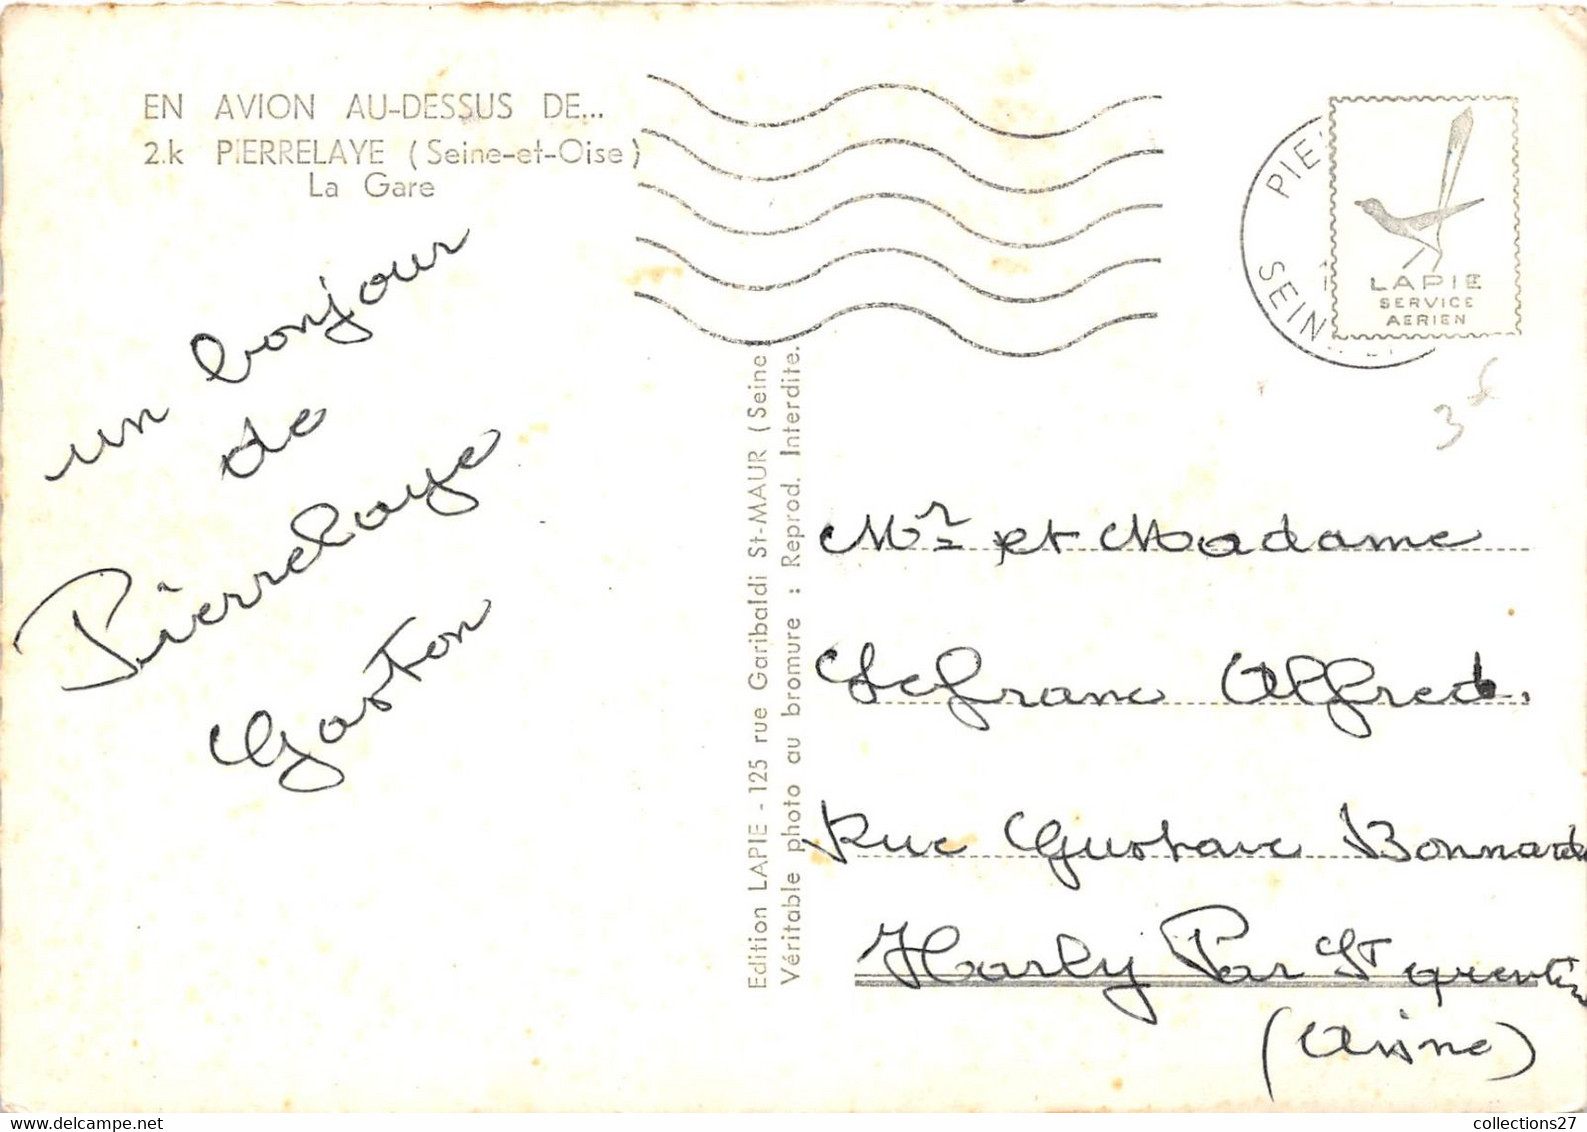 EN AVION AU-DESSUS DE...
2.k PIERRELAYE (Seine-et-Oise)
La Gare
un bonjour
de
Pierrelaye
Gaston
Edition LAPIE - 125 rue Garibaldi St-MAUR (Seine)
Véritable photo au bromure : Reprod. Interdite.
PIE
SEIN
LAPIE
SERVICE
AERIEN
3
Mr et Madame
Lefranc Alfred.
Rue Gustave Bonnard
Harly Par St quentin
(Aisne)
collections27